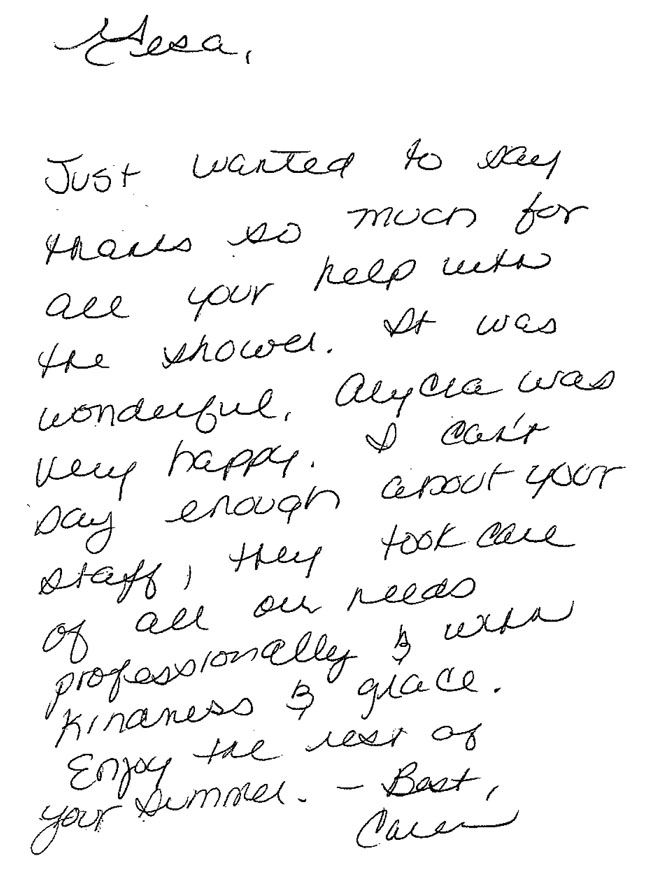 Gesa,
Just wanted to say
thanks so much for
all your help with
the shower. It was
wonderful. Alycia was
very happy. I can't
say enough about your
staff, they took care
of all our needs
professionally & with
kindness & grace.
Enjoy the rest of
your summer. - Best,
Caren